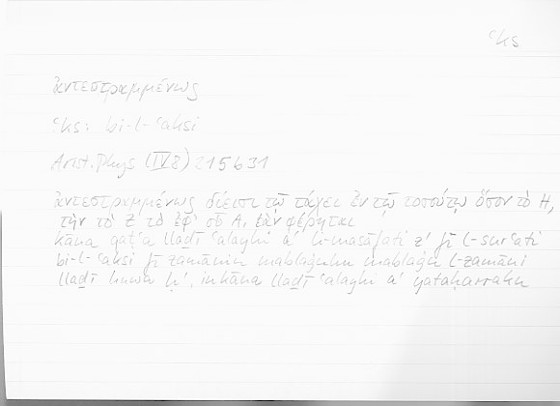 ʿks
ἀντεστραμμένως
ʿks: bi-l-ʿaksi
Arist. Phys (IV 8) 215b31
ἀντεστραμμένως δίεισι τῷ τάχει ἐν τῷ τοσούτῳ ὅσον τὸ H,
τὴν τὸ Z τὸ ἐφ' οὗ A, ἐὰν φέρηται
kāna qaṭʿa lladī ʿalayhi a' li-masāfati z' fī l-surʿati
bi-l-ʿaksi fī zamānin mablaġuhu mablaġu l-zamāni
lladī huwa ḥ', in kāna lladī ʿalayhi a' yataḥarraku